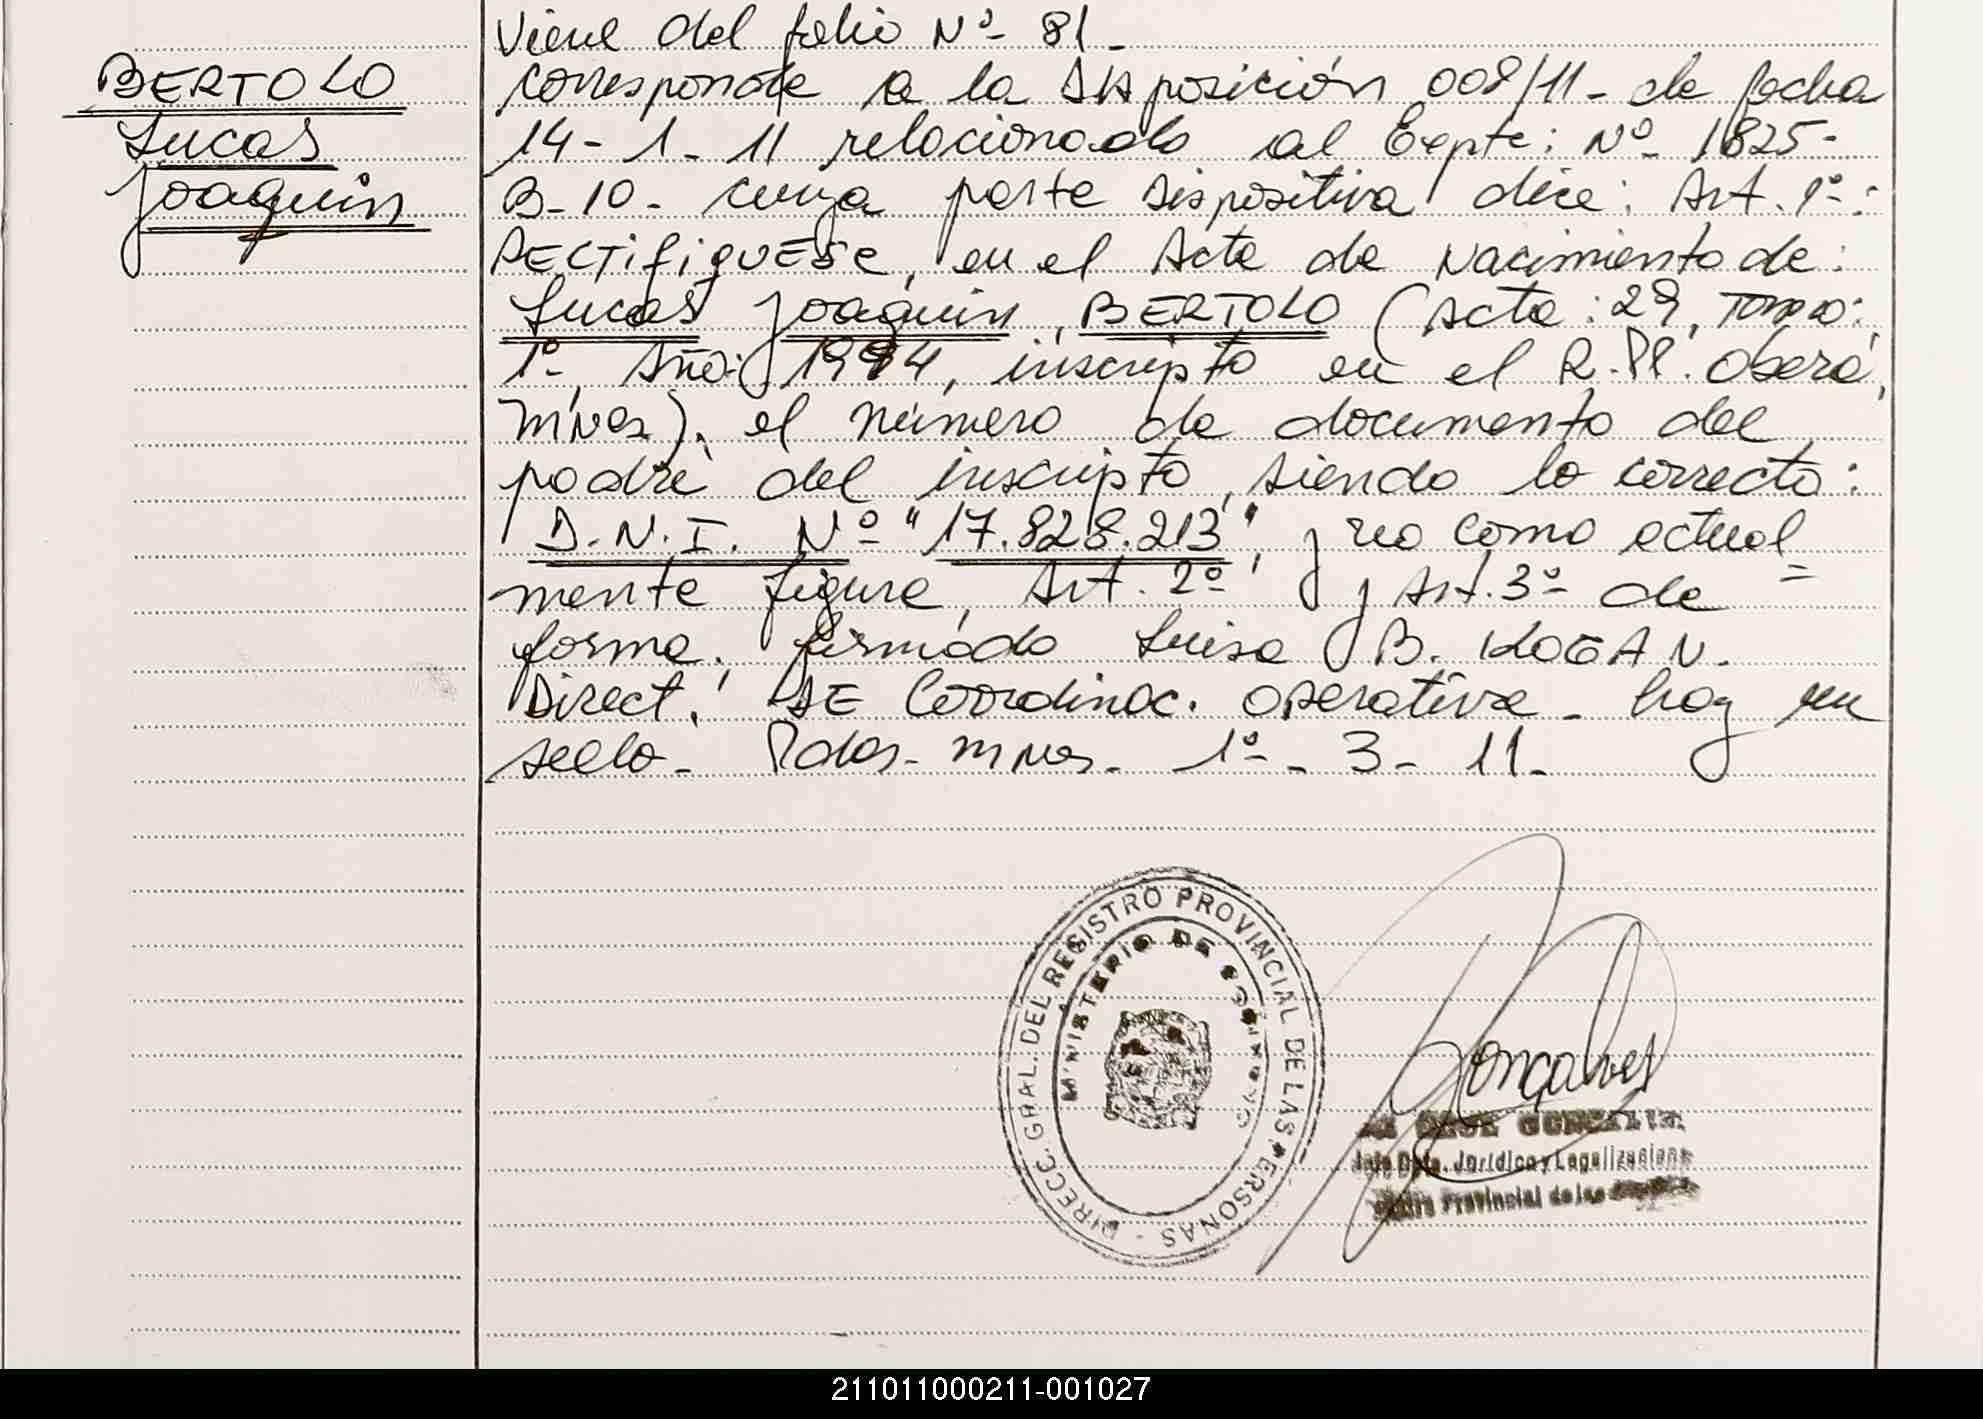 BERTOLO
Lucas
Joaquin
Viene del folio Nº- 81-
corresponde a la Disposición 008/11- de fecha
14-1-11 relacionado al Expte: Nº- 1825-
B-10- cuya parte dispositiva dice: Art. 1º-:
RECTIFIQUESE, en el Acta de Nacimiento de:
Lucas Joaquin, BERTOLO (Acta: 29, Tomo:
1º-, Año: 1994, inscripto en el R.Pl. Oberá,
Mnes), el número de documento del
padre del inscripto, siendo lo correcto:
D.N.I. Nº "17.828.213", y no como actual=
mente figura, Art. 2º y Art. 3º- de
forma. firmado Luisa B. KOGAN.
Direct. DE Coordinac. operativa- hay un
sello- Pdas- Mnes- 1º-- 3- 11-
DIRECC. GRAL. DEL REGISTRO PROVINCIAL DE LAS PERSONAS -
MINISTERIO DE GOBIERNO
Gonçalves
Jefe Dpto. Jurídico y Legalizaciones
Provincial de las
211011000211-001027